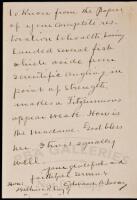 to know from the papers
of your complete res-
toration to health. Having
landed several fish
which aside from
scientific lunging in
point of strength,
makes a Fitzsimmons
appear weak. How is
the madame. God bless
her. I trust equally
well.
Your grateful and
faithful servant
Hon.